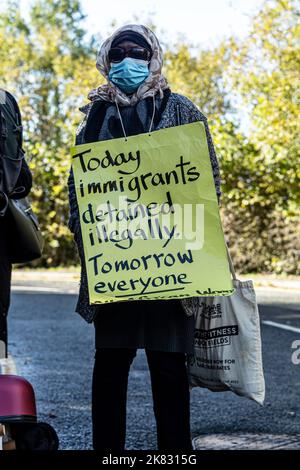 Today
immigrants
detained
illegally.
Tomorrow
everyone
FITNESS
FIELDS